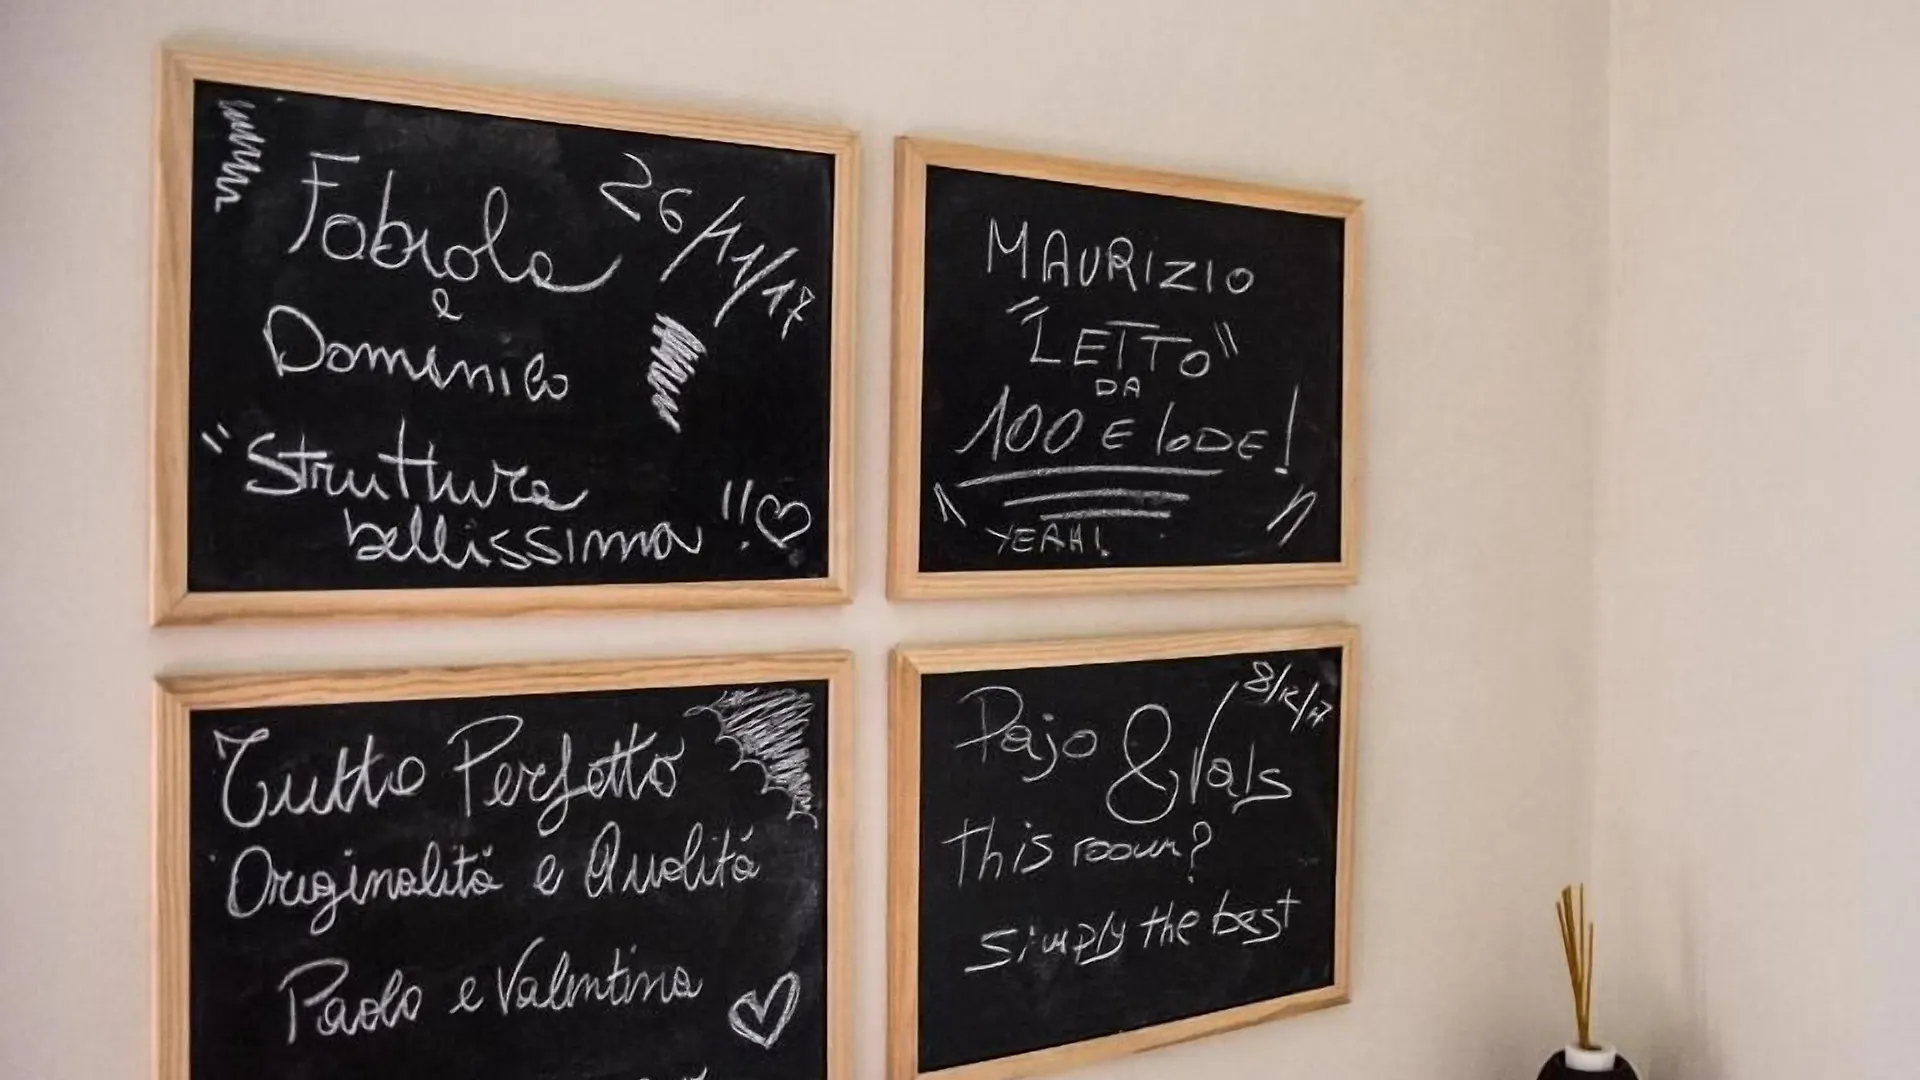 Fabiola 26/11/17
e
Domenico
"Struttura
bellissima!"
MAURIZIO
"LETTO"
DA
100 E lODE!
YEAH!
Tutto Perfetto
Originalitá e Qualitá
Paolo e Valentina
8/12/17
Pajo & Vals
this room?
simply the best